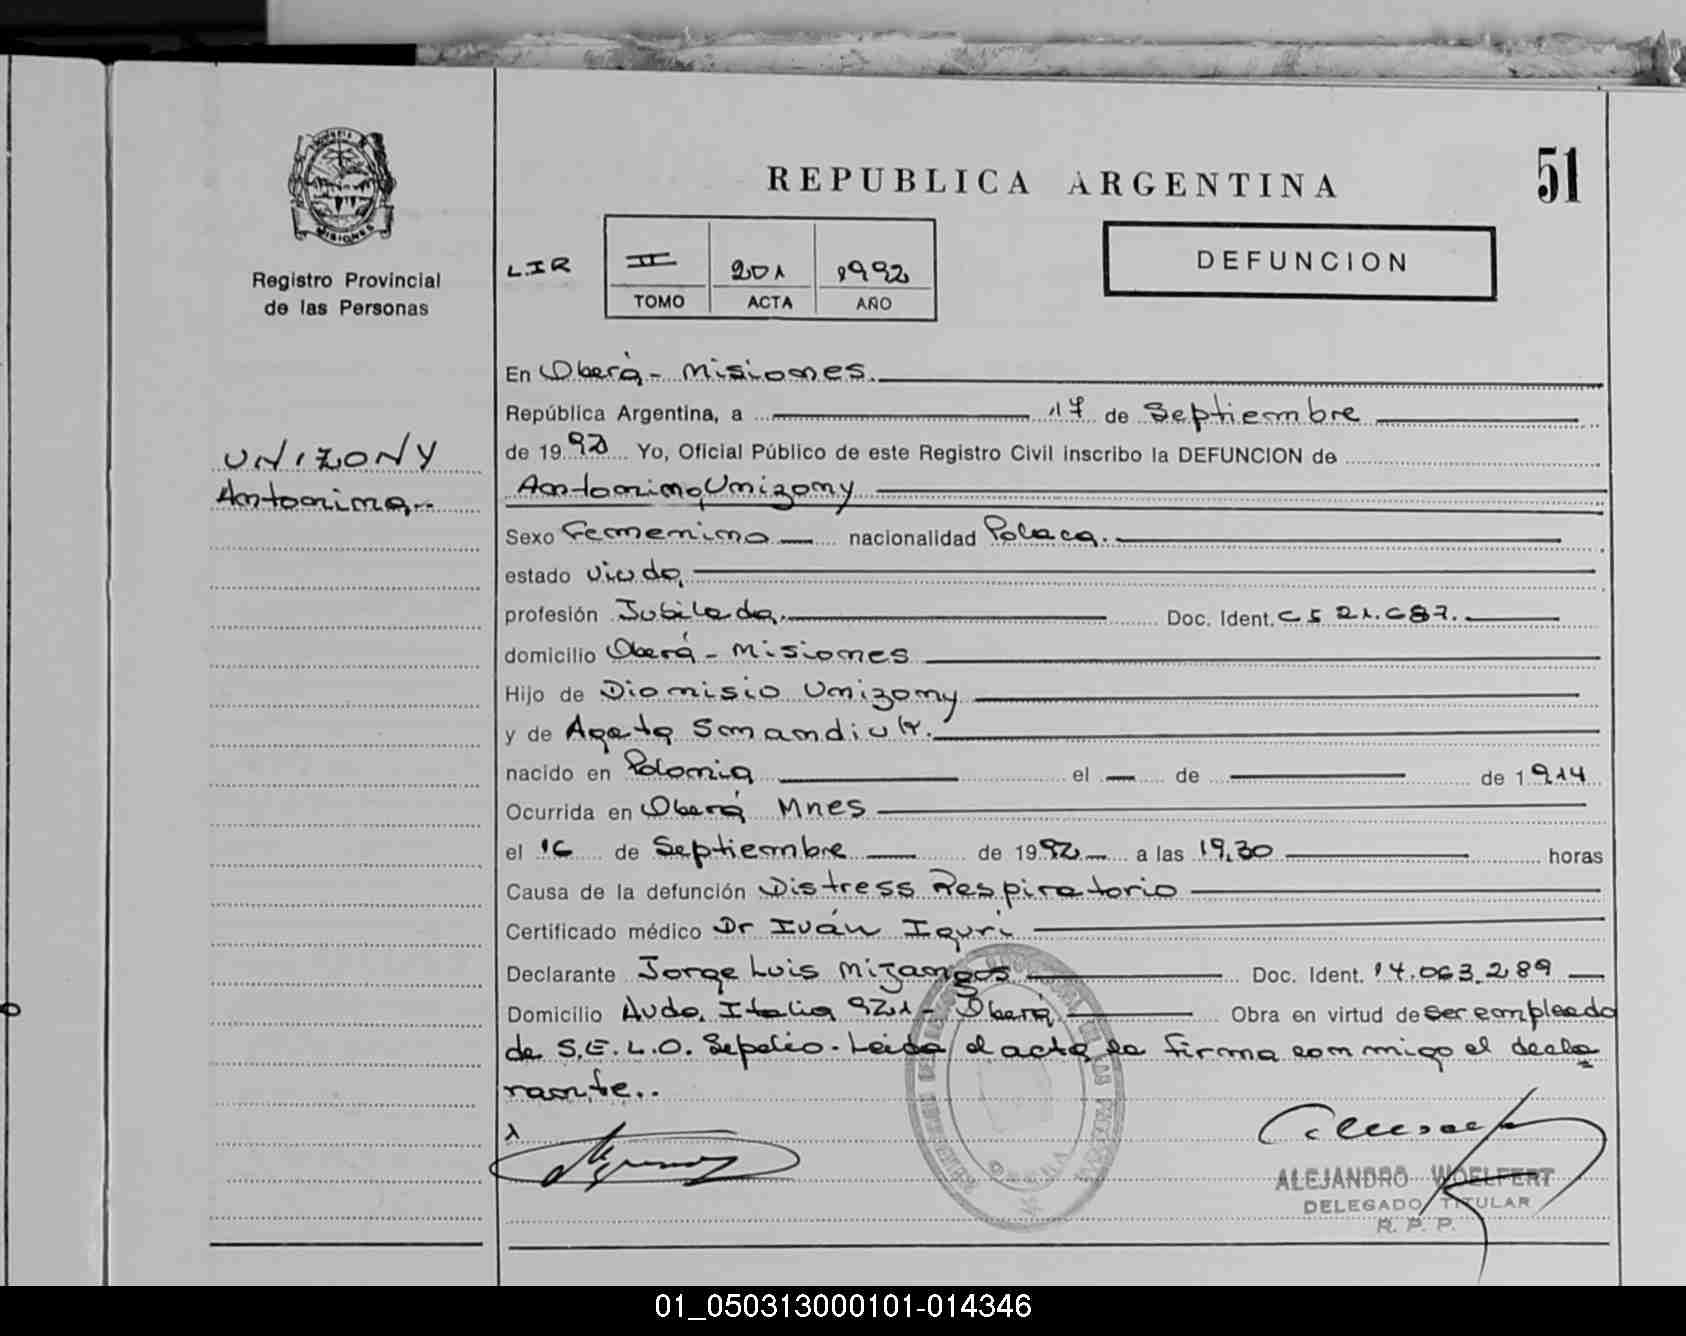 REPUBLICA ARGENTINA
51
MISIONES
Registro Provincial
de las Personas
LIR
II 201 1992
TOMO ACTA AÑO
DEFUNCION
UNIZONY
Antonina.-
En Oberá - Misiones.
República Argentina, a 17 de Septiembre
de 1992 Yo, Oficial Público de este Registro Civil inscribo la DEFUNCION de
Antonina Unizony
Sexo Femenino nacionalidad Polaca.
estado viuda
profesión Jubilada. Doc. Ident.
domicilio Oberá - Misiones
Hijo de Dionisio Unizony
y de Agata Smandiuk.
nacido en Polonia el — de — de 1914
Ocurrida en Oberá Mnes
el 16 de Septiembre de 1992 a las 19,30 horas
Causa de la defunción Distress Respiratorio
Certificado médico Dr Iván Iquri
Declarante Jorge Luis Mijangos Doc. Ident. 14.063.289
Domicilio Avda. Italia 921 - Oberá Obra en virtud de ser empleado
de S.E.L.O. Sepelio. Leida el acta la firma conmigo el decla
rante..
ALEJANDRO WOELFERT
DELEGADO TITULAR
R. P. P.
01_050313000101-014346